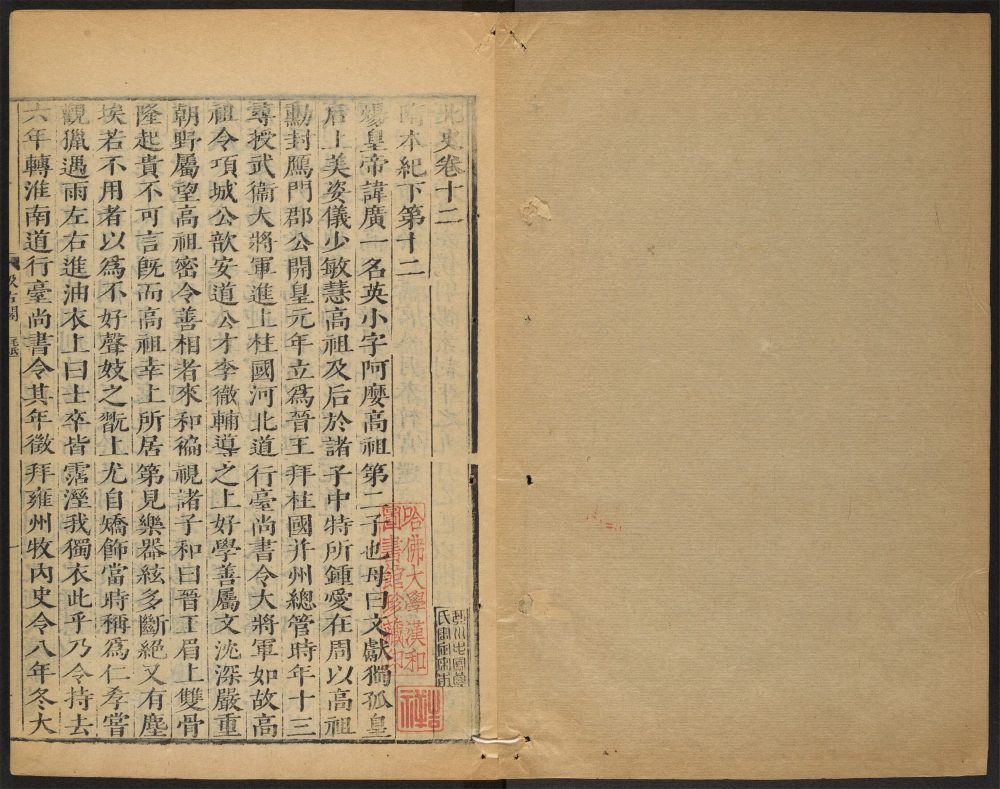 北史卷十二
隋本紀下第十二
煬皇帝諱廣一名英小字阿㦄高祖第二子也母曰文獻獨孤皇
后上美姿儀少敏慧高祖及后於諸子中特所鍾愛在周以高祖
勳封鴈門郡公開皇元年立爲晉王拜柱國并州總管時年十三
尋授武衞大將軍進上柱國河北道行臺尚書令大將軍如故高
祖令項城公歆安道公才李徹輔導之上好學善屬文沈深嚴重
朝野屬望高祖密令善相者來和徧視諸子和曰晉王眉上雙骨
隆起貴不可言既而高祖幸上所居第見樂器絃多斷絕又有塵
埃若不用者以爲不好聲妓之翫上尤自矯飾當時稱爲仁孝嘗
觀獵遇雨左右進油衣上曰士卒皆霑溼我獨衣此乎乃令持去
六年轉淮南道行臺尚書令其年徵拜雍州牧內史令八年冬大
汲古閣
哈佛大學漢和
圖書館珍藏印